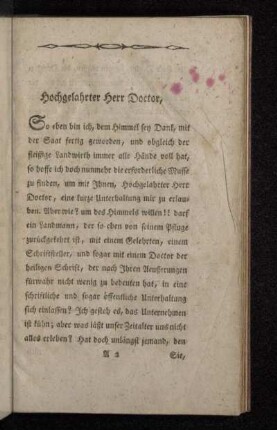 Hochgelahrter Herr Doctor,
So eben bin ich, dem Himmel sey Dank, mit
der Saat fertig geworden, und obgleich der
fleißige Landwirth immer alle Hände voll hat,
so hoffe ich doch nunmehr die erforderliche Musse
zu finden, um mit Ihnen, Hochgelahrter Herr
Doctor, eine kurze Unterhaltung mir zu erlau-
ben. Aber wie? um des Himmels willen!! darf
ein Landmann, der so eben von seinem Pfluge
zurückgekehrt ist, mit einem Gelehrten, einem
Schriftsteller, und sogar mit einem Doctor der
heiligen Schrift, der nach Ihren Aeusserungen
fürwahr nicht wenig zu bedeuten hat, in eine
schriftliche und sogar öffentliche Unterhaltung
sich einlassen? Ich gesteh es, das Unternehmen
ist kühn; aber was läßt unser Zeitalter uns nicht
alles erleben? Hat doch unlängst jemand, den
A 2 Sie,